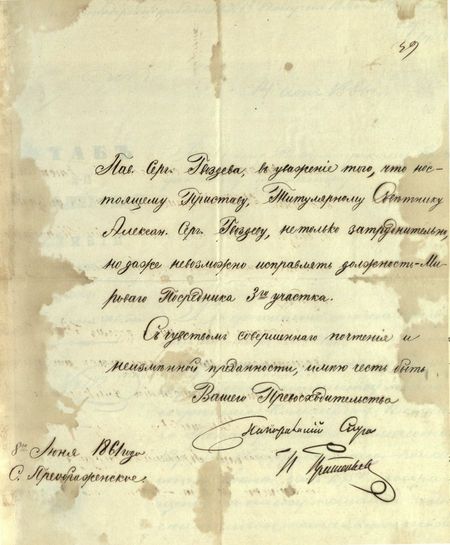 59
Пав. Серг. Гвоздева, въ уваженіе того, что нас-
тоящему Приставу, Титулярному Совѣтнику
Алексан. Серг. Гвоздеву, не только затруднительно,
но даже невозможно исправлять должности Ми-
роваго Посредника 3го участка.
Съ чувствомъ совершеннаго почтенія и
неизмѣнной преданности, имѣю честь быть
Вашего Превосходительства
покорнѣйшій слуга
8го Іюня 1861 года
С. Преображенское.